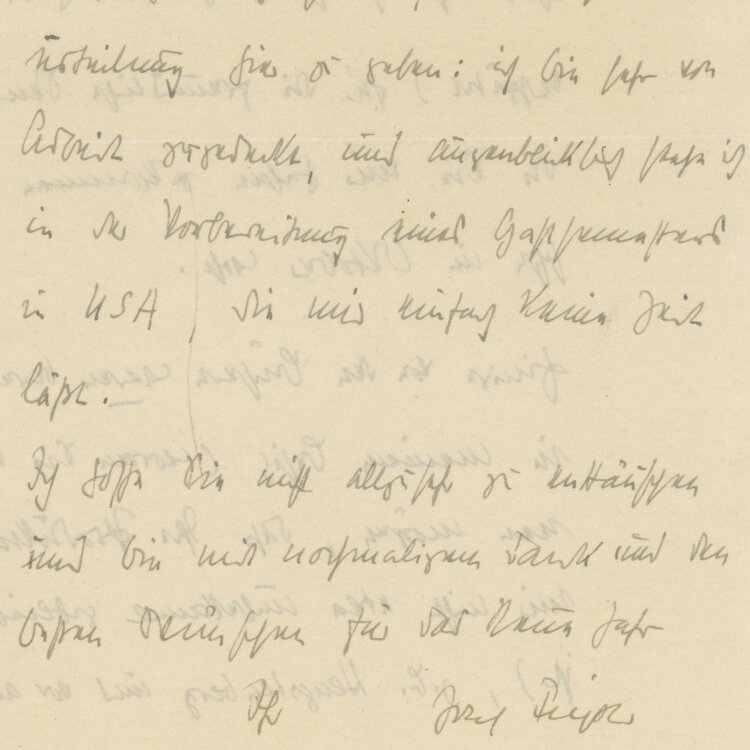 Urteilung hier zu geben: ich bin sehr von
Arbeit zugedeckt, und augenblicklich stehe ich
in der Vorbereitung eines Gastsemesters
in USA, die mir einfach keine Zeit
läßt.
Ich hoffe Sie nicht allzusehr zu enttäuschen
und bin mit nochmaligem Dank und den
besten Wünschen für das Neue Jahr
Ihr Josef Pieper